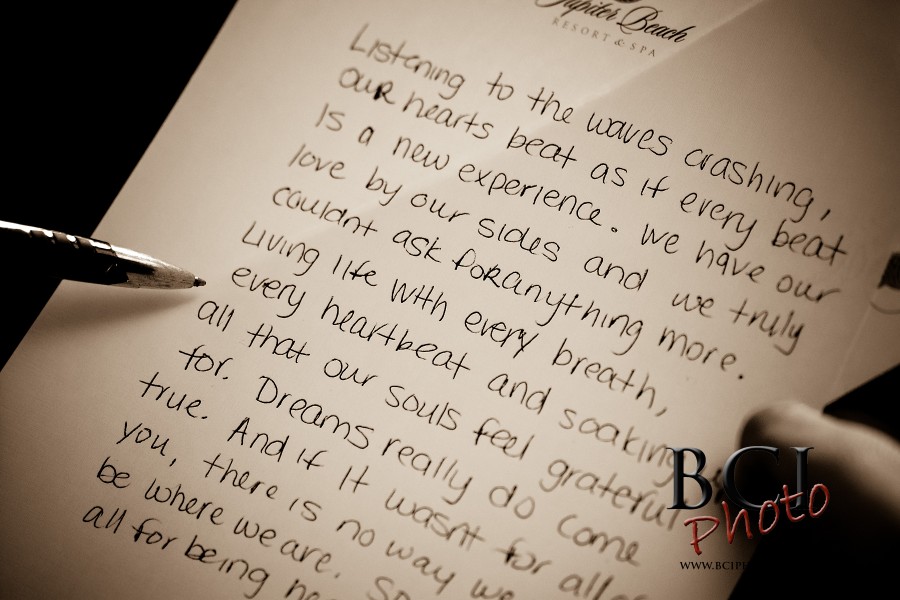 Jupiter Beach
RESORT & SPA
Listening to the waves crashing,
our hearts beat as if every beat
is a new experience. We have our
love by our sides and we truly
couldnt ask for anything more.
Living life with every breath,
every heartbeat and soaking
all that our souls feel grateful
for. Dreams really do come
true. And if it wasnt for all of
you, there is no way we
be where we are.
all for being
BCI
Photo